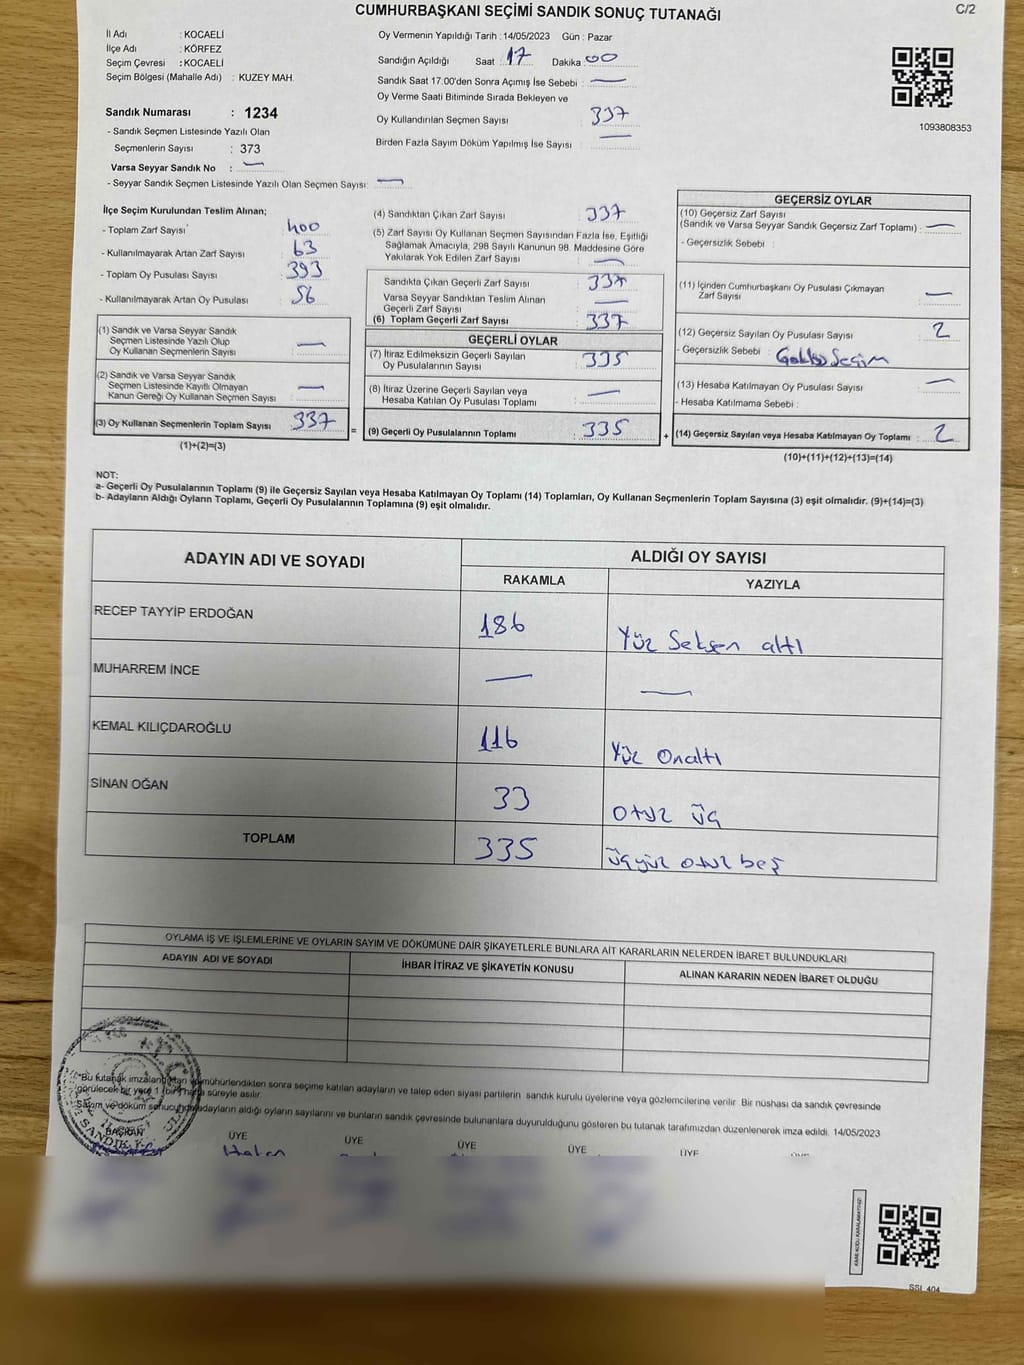 CUMHURBAŞKANI SEÇİMİ SANDIK SONUÇ TUTANAĞI
C/2
İl Adı : KOCAELİ
İlçe Adı : KÖRFEZ
Seçim Çevresi : KOCAELİ
Seçim Bölgesi (Mahalle Adı) : KUZEY MAH.
Sandık Numarası : 1234
- Sandık Seçmen Listesinde Yazılı Olan
Seçmenlerin Sayısı : 373
Varsa Seyyar Sandık No : —
- Seyyar Sandık Seçmen Listesinde Yazılı Olan Seçmen Sayısı: —
Oy Vermenin Yapıldığı Tarih : 14/05/2023 Gün : Pazar
Sandığın Açıldığı Saat : 17 Dakika : 00
Sandık Saat 17.00'den Sonra Açımış İse Sebebi : —
Oy Verme Saati Bitiminde Sırada Bekleyen ve
Oy Kullandırılan Seçmen Sayısı : 337
Birden Fazla Sayım Döküm Yapılmış İse Sayısı : —
1093808353
İlçe Seçim Kurulundan Teslim Alınan;
- Toplam Zarf Sayısı : 400
- Kullanılmayarak Artan Zarf Sayısı : 63
- Toplam Oy Pusulası Sayısı : 393
- Kullanılmayarak Artan Oy Pusulası : 56
(1) Sandık ve Varsa Seyyar Sandık
Seçmen Listesinde Yazılı Olup
Oy Kullanan Seçmenlerin Sayısı : —
(2) Sandık ve Varsa Seyyar Sandık
Seçmen Listesinde Kayıtlı Olmayan
Kanun Gereği Oy Kullanan Seçmen Sayısı : —
(3) Oy Kullanan Seçmenlerin Toplam Sayısı : 337
(1)+(2)=(3)
(4) Sandıktan Çıkan Zarf Sayısı : 337
(5) Zarf Sayısı Oy Kullanan Seçmen Sayısından Fazla İse, Eşitliği
Sağlamak Amacıyla, 298 Sayılı Kanunun 98. Maddesine Göre
Yakılarak Yok Edilen Zarf Sayısı : —
Sandıkta Çıkan Geçerli Zarf Sayısı : 337
Varsa Seyyar Sandıktan Teslim Alınan
Geçerli Zarf Sayısı : —
(6) Toplam Geçerli Zarf Sayısı : 337
GEÇERLİ OYLAR
(7) İtiraz Edilmeksizin Geçerli Sayılan
Oy Pusulalarının Sayısı : 335
(8) İtiraz Üzerine Geçerli Sayılan veya
Hesaba Katılan Oy Pusulası Toplamı : —
= (9) Geçerli Oy Pusulalarının Toplamı : 335
GEÇERSİZ OYLAR
(10) Geçersiz Zarf Sayısı
(Sandık ve Varsa Seyyar Sandık Geçersiz Zarf Toplamı) : —
- Geçersizlik Sebebi :
(11) İçinden Cumhurbaşkanı Oy Pusulası Çıkmayan
Zarf Sayısı : —
(12) Geçersiz Sayılan Oy Pusulası Sayısı : 2
- Geçersizlik Sebebi : Seçim
(13) Hesaba Katılmayan Oy Pusulası Sayısı : —
- Hesaba Katılmama Sebebi :
+ (14) Geçersiz Sayılan veya Hesaba Katılmayan Oy Toplamı : 2
(10)+(11)+(12)+(13)=(14)
NOT:
a- Geçerli Oy Pusulalarının Toplamı (9) ile Geçersiz Sayılan veya Hesaba Katılmayan Oy Toplamı (14) Toplamları, Oy Kullanan Seçmenlerin Toplam Sayısına (3) eşit olmalıdır. (9)+(14)=(3)
b- Adayların Aldığı Oyların Toplamı, Geçerli Oy Pusulalarının Toplamına (9) eşit olmalıdır.
ADAYIN ADI VE SOYADI ALDIĞI OY SAYISI
RAKAMLA YAZIYLA
RECEP TAYYİP ERDOĞAN 186 Yüz Seksen altı
MUHARREM İNCE — —
KEMAL KILIÇDAROĞLU 116 Yüz Onaltı
SİNAN OĞAN 33 otuz üç
TOPLAM 335 üçyüz otuz beş
OYLAMA İŞ VE İŞLEMLERİNE VE OYLARIN SAYIM VE DÖKÜMÜNE DAİR ŞİKAYETLERLE BUNLARA AİT KARARLARIN NELERDEN İBARET BULUNDUKLARI
ADAYIN ADI VE SOYADI İHBAR İTİRAZ VE ŞİKAYETİN KONUSU ALINAN KARARIN NEDEN İBARET OLDUĞU
"Bu tutanak imzalandıktan ve mühürlendikten sonra seçime katılan adayların ve talep eden siyasi partilerin sandık kurulu üyelerine veya gözlemcilerine verilir. Bir nüshası da sandık çevresinde
görülecek bir yere 1 (bir) hafta süreyle asılır.
Sayım ve döküm sonucunda adayların aldığı oyların sayılarını ve bunların sandık çevresinde bulunanlara duyurulduğunu gösteren bu tutanak tarafımızdan düzenlenerek imza edildi. 14/05/2023
BAŞKAN ÜYE ÜYE ÜYE ÜYE ÜYE ÜYE
SSI 404